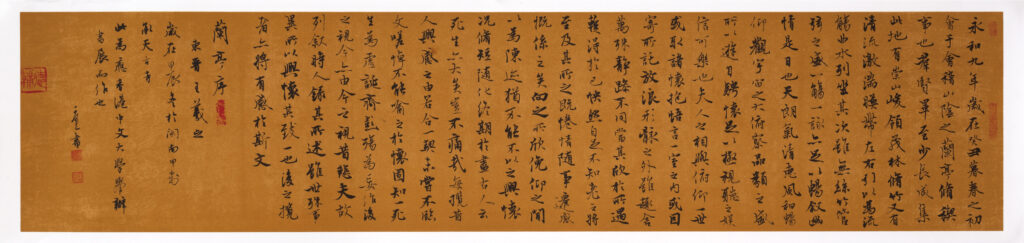 永和九年歲在癸丑暮春之初
會于會稽山陰之蘭亭脩禊
事也群賢畢至少長咸集
此地有崇山峻領茂林脩竹又有
清流激湍暎帶左右引以為流
觴曲水列坐其次雖無絲竹管
絃之盛一觴一詠亦足以暢敘幽
情是日也天朗氣清惠風和暢
仰觀宇宙之大俯察品類之盛
所以遊目騁懷足以極視聽之娛
信可樂也夫人之相與俯仰一世
或取諸懷抱悟言一室之內或因
寄所託放浪形骸之外雖趣舍
萬殊靜躁不同當其欣於所遇
蹔得於己快然自足不知老之將
至及其所之既惓情隨事遷感
慨係之矣向之所欣俛仰之間
以為陳迹猶不能不以之興懷
況脩短隨化終期於盡古人云
死生亦大矣豈不痛哉每攬昔
人興感之由若合一契未嘗不臨
文嗟悼不能喻之於懷固知一死
生為虛誕齊彭殤為妄作後
之視今亦由今之視昔悲夫故
列敘時人錄其所述雖世殊事
異所以興懷其致一也後之攬
者亦將有感於斯文
蘭亭序
東晉王羲之
歲在甲辰冬於閩南
承天
此為應香港中文大學
書展而作也